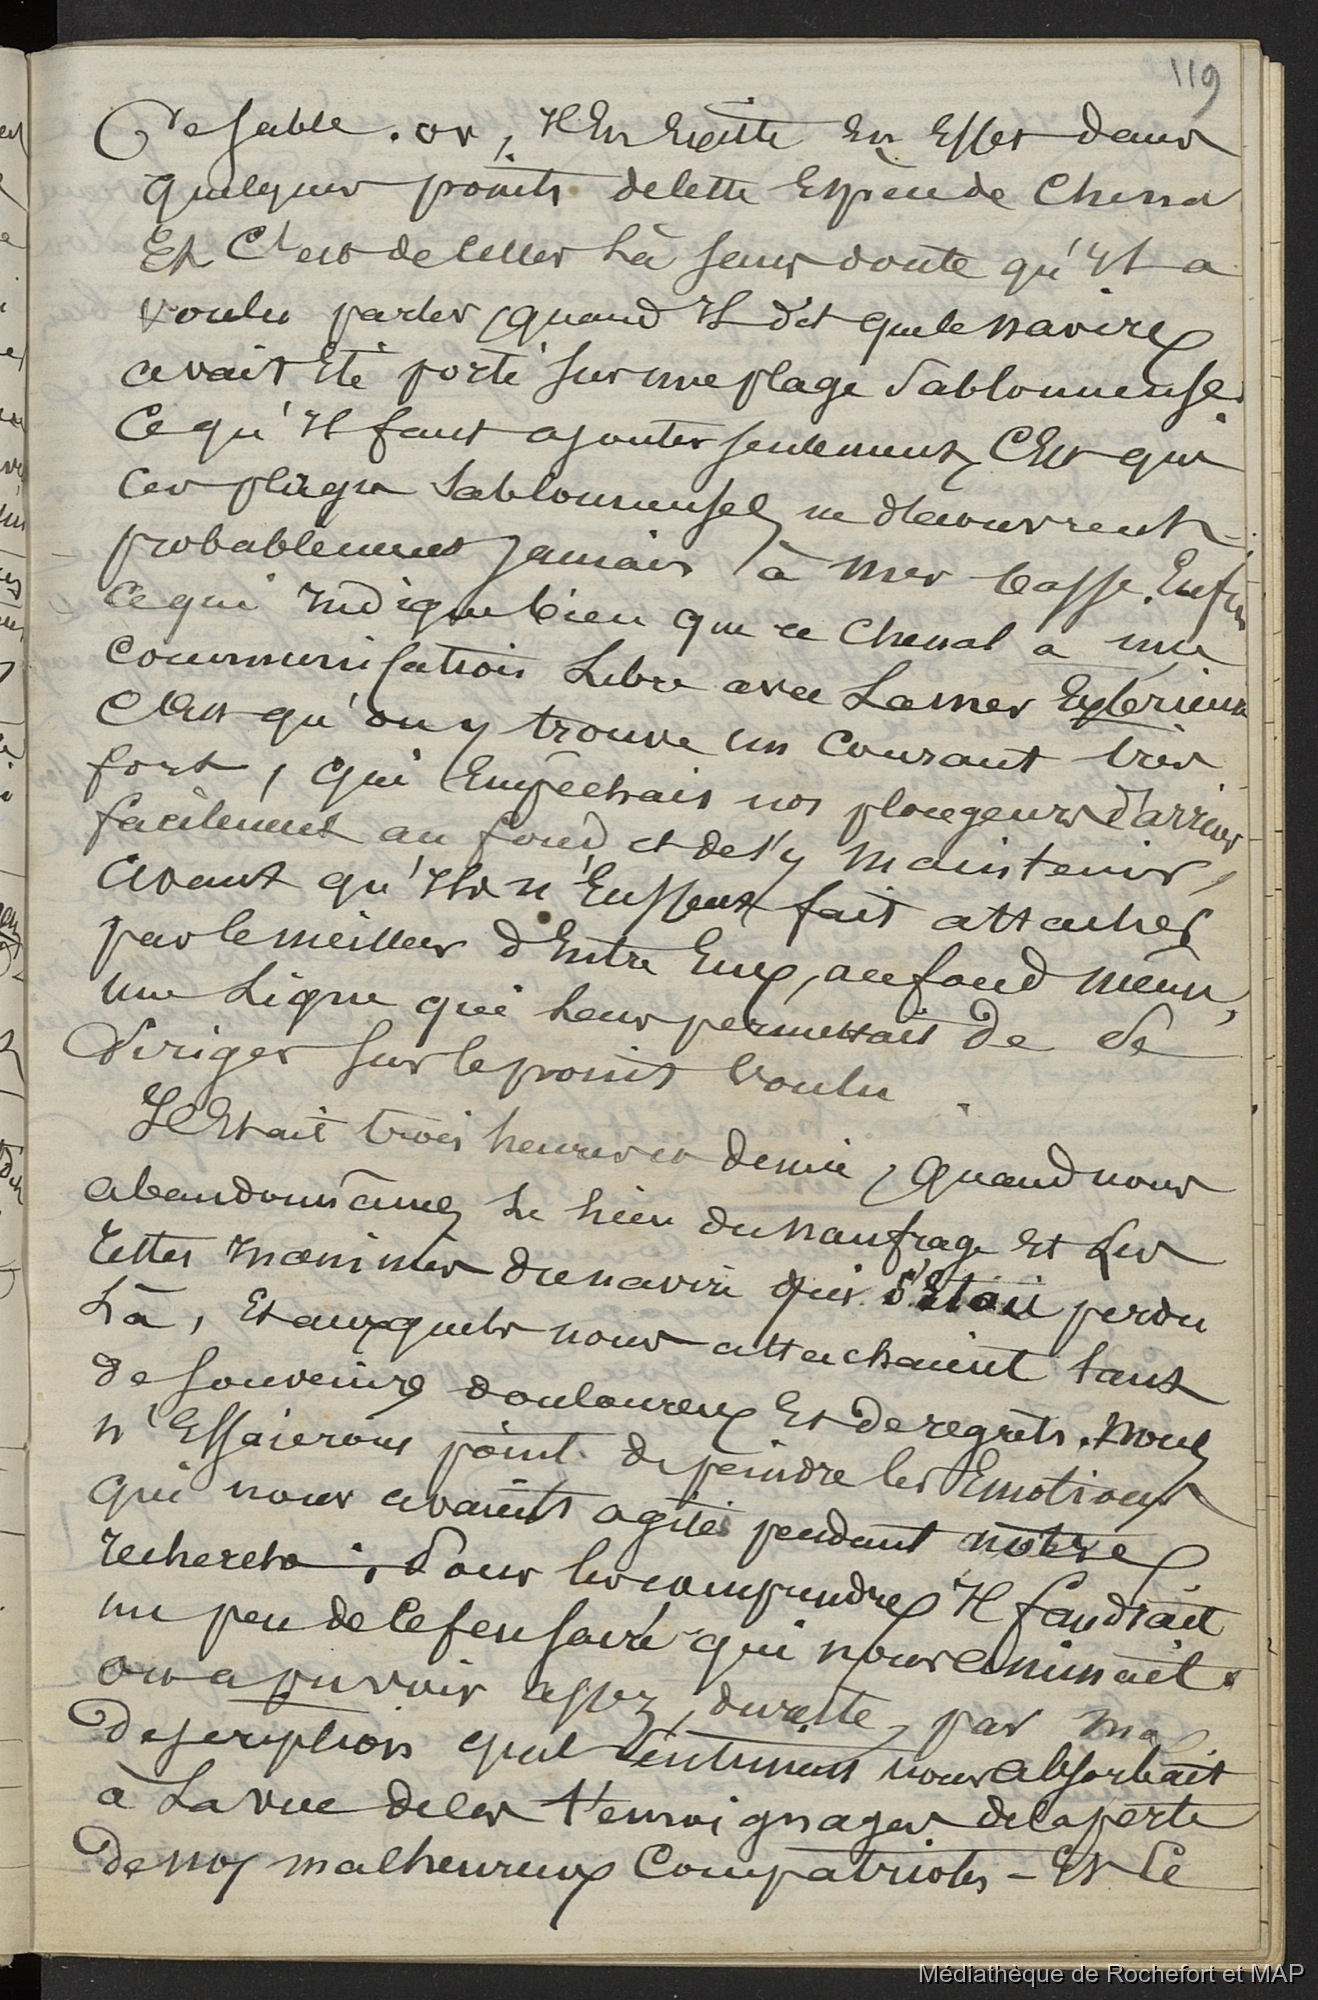 119
de sable. or, Il En Existe En Effet dans
quelques points de cette Espèce de Chenal
Et C'est de Celles Là sans doute qu'Il a
voulu parler, quand Il dit que le navire
avait Eté porté sur une plage Sablonneuse.
Ce qu'Il faut ajouter seulement, C'Est que
Ces plages Sablonneuses ne découvrent
probablement Jamais à Mer basse. Enfin
Ce qui Indique bien que ce Chenal a une
Communication Libre avec La mer Extérieure
C'Est qu'on y trouve un Courant très
fort, qui Empêchait nos plongeurs d'arriver
facilement au fond et de s'y Maintenir,
avant qu'Ils n'Eussent fait attacher
par le meilleur d'Entre Eux, au fond même,
une Ligne qui Leur permettait De Se
Diriger sur le point Voulu.
Il Etait trois heures et demie, quand nous
abandonnâmes Le Lieu du Naufrage Et Les
restes Inanimés du navire qui s'Etait perdu
Là, Et auxquels nous attachaient tant
de souvenirs douloureux Et De regrets. Nous
n'Essaierons point de peindre les Emotions
qui nous avaient agités pendant notre
recherche; Pour les comprendre Il faudrait
un peu de Ce feu sacré qui nous animait.
on a pu voir assez, du reste, par Ma
Description quel Sentiment nous absorbait
à La vue de Ces témoignages de la perte
De nos malheureux Compatriotes - Et Le
Médiathèque de Rochefort et MAP